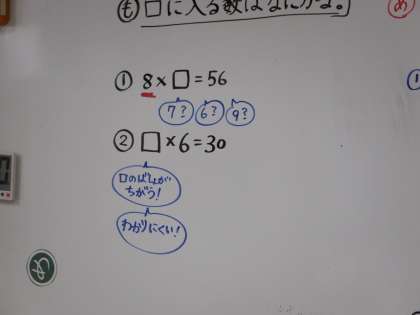 も □に入る数はなにかな。
め
① 8×□=56
7? 6? 9?
② □×6=30
□のばしょが
ちがう!
わかりにくい!